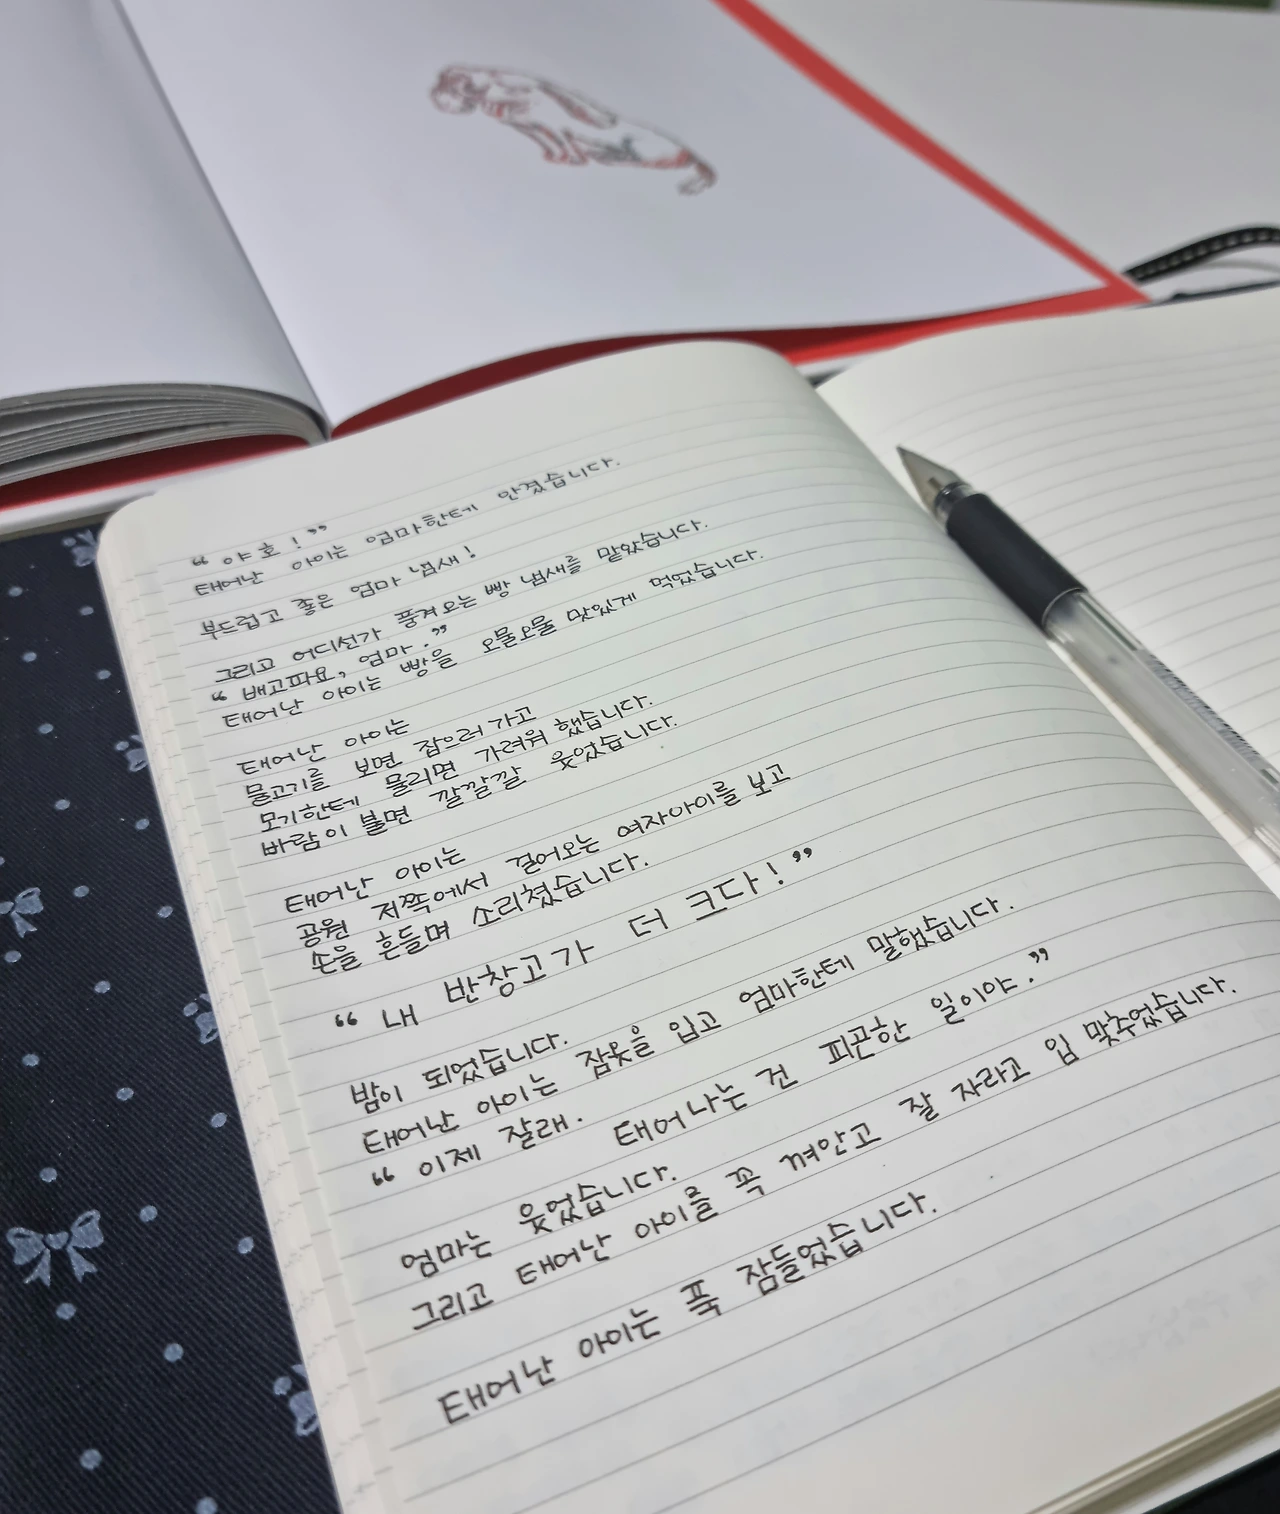 “ 야호 ! ”
태어난 아이는 엄마한테 안겼습니다.
부드럽고 좋은 엄마 냄새 !
그리고 어디선가 풍겨오는 빵 냄새를 맡았습니다.
“ 배고파요, 엄마. ”
태어난 아이는 빵을 오물오물 맛있게 먹었습니다.
태어난 아이는
물고기를 보면 잡으러 가고
모기한테 물리면 가려워 했습니다.
바람이 불면 깔깔깔 웃었습니다.
태어난 아이는
공원 저쪽에서 걸어오는 여자아이를 보고
손을 흔들며 소리쳤습니다.
“ 내 반창고가 더 크다 ! ”
밤이 되었습니다.
태어난 아이는 잠옷을 입고 엄마한테 말했습니다.
“ 이제 잘래. 태어나는 건 피곤한 일이야. ”
엄마는 웃었습니다.
그리고 태어난 아이를 꼭 껴안고 잘 자라고 입 맞추었습니다.
태어난 아이는 푹 잠들었습니다.